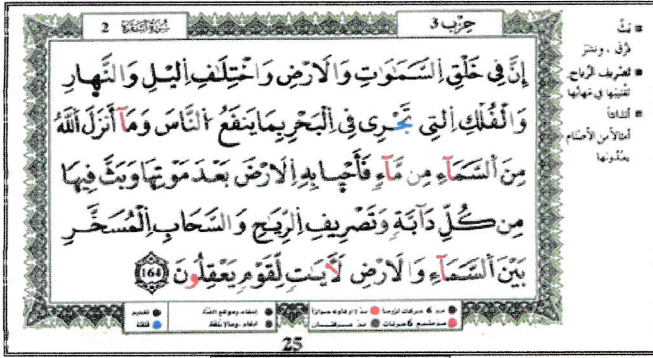 سُورَةُ الْبَقَرَةِ 2
حِزْب 3
إِنَّ فِي خَلْقِ اِلسَّمَٰوَٰتِ وَالَارْضِ وَاخْتِلَٰفِ اِليْلِ وَالنَّهارِ
وَالْفُلْكِ اِلتِي تَجْرِى فِى اِلْبَحْرِ بِمَا يَنفَعُ اُلنَّاسَ وَمَآ أَنزَلَ اَللَّهُ
مِنَ اَلسَّمَآءِ مِن مَّآءٍ فَأَحْيا بِهِ اِلَارْضَ بَعْدَ مَوْتِهَا وَبَثَّ فِيهَا
مِن كُلِّ دَآبَّةٍ وَتَصْرِيفِ اِلرِّيَٰحِ وَالسَّحَابِ اِلْمُسَخَّرِ
بَيْنَ اَلسَّمَآءِ وَالَارْضِ لَأَيَٰتٍ لِّقَوْمٍ يَعْقِلُونَ 164
■ بَثَّ
فرّق ، ونشر
■ تصريف الرياح
تقليبها في مهابّها
■ أندادًا
أمثالاً من الأصنام
يعبدونها
مدّ 6 حركات لزوما
مدّ حركتان
تفخيم
قلقلة
25